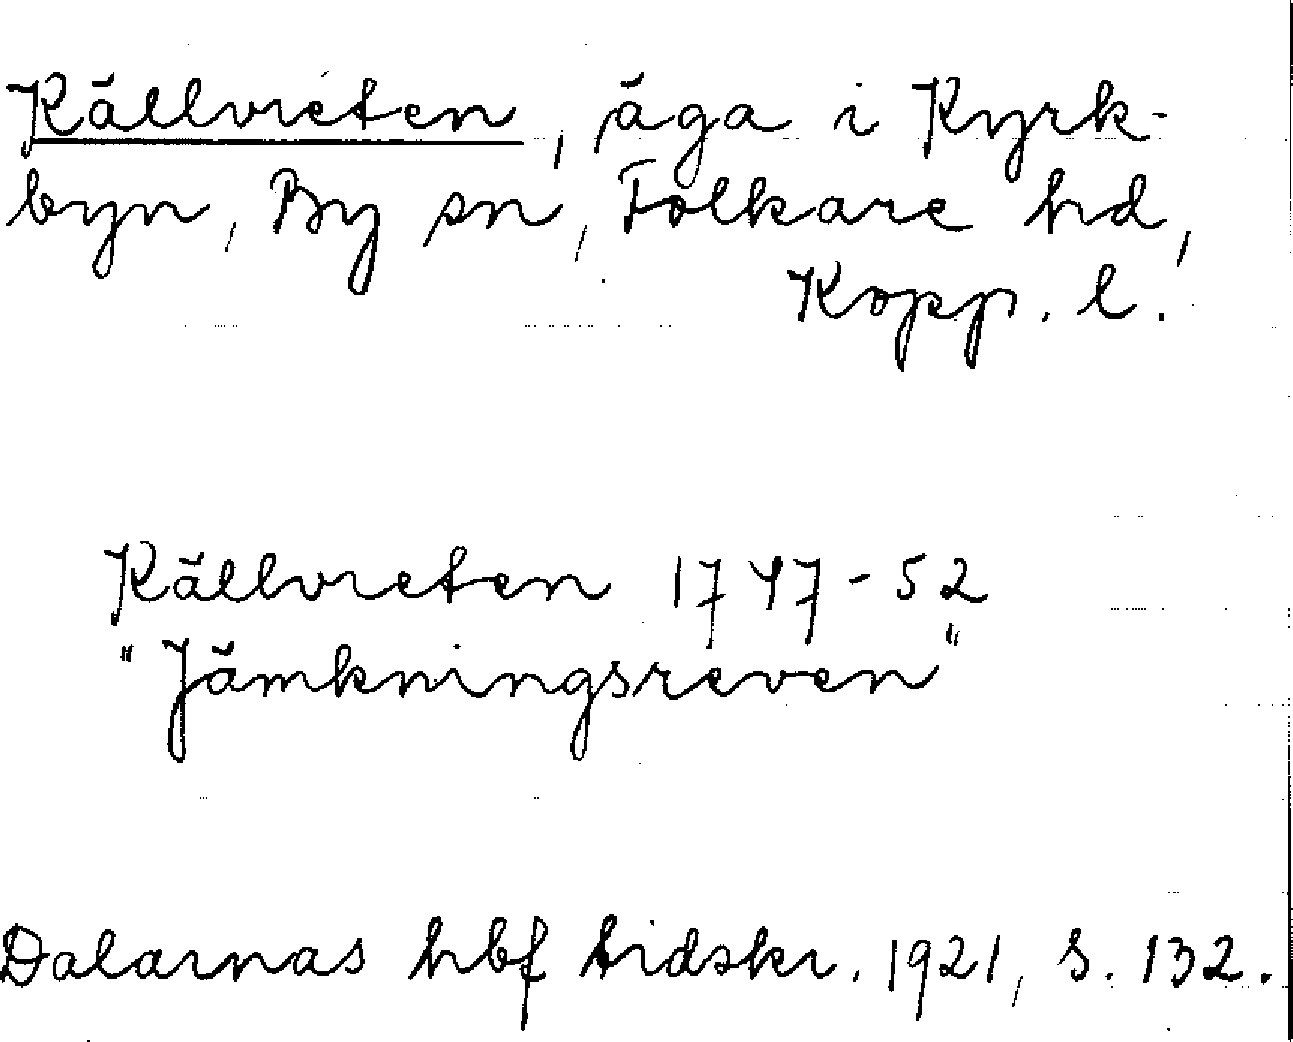 Källvreten, äga i Kyrk-
byn, By sn, Folkare hd,
Kopp. l.
Källvreten 1747-52
"Jämkningsreven"
Dalarnas hbf tidskr. 1921, s. 132.